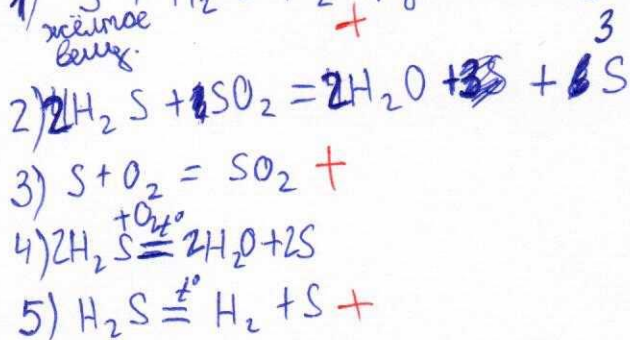 1) H₂
жёлтое
вещ. +
2) 2H₂S + 1SO₂ = 2H₂O + 3S
3) S + O₂ = SO₂ +
+O₂ t°
4) 2H₂S = 2H₂O + 2S
t°
5) H₂S = H₂ + S +